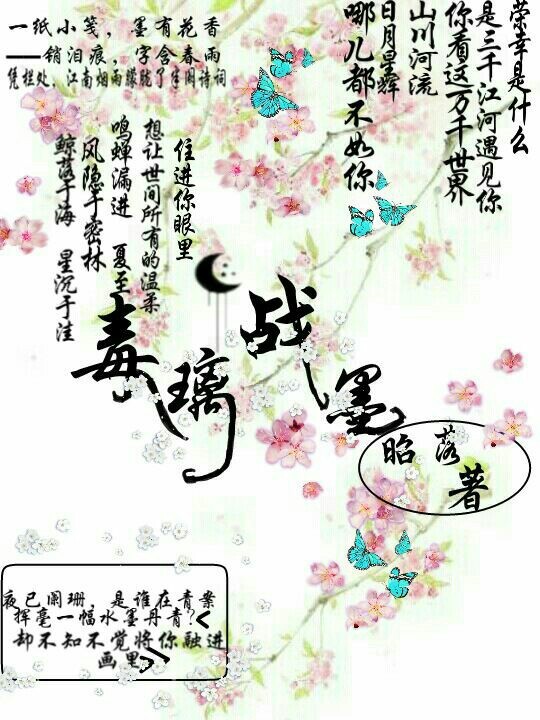 一纸小笺，墨有花香
——销泪痕，字含春雨
凭栏处，江南烟雨朦胧了半阕诗词
荣幸是什么
是三千江河遇见你
你看这一万千世界
山川河流
日月星辉
哪儿都不如你
住进你眼里
想让世间所有的温柔
鸣蝉漏进 夏至
风隐于密林
鲸落于海 星沉于洼
毒璃战墨
昭落著
夜已阑珊，是谁在青案
挥毫一幅水墨丹青？<
却不知不觉将你融进
画里>>